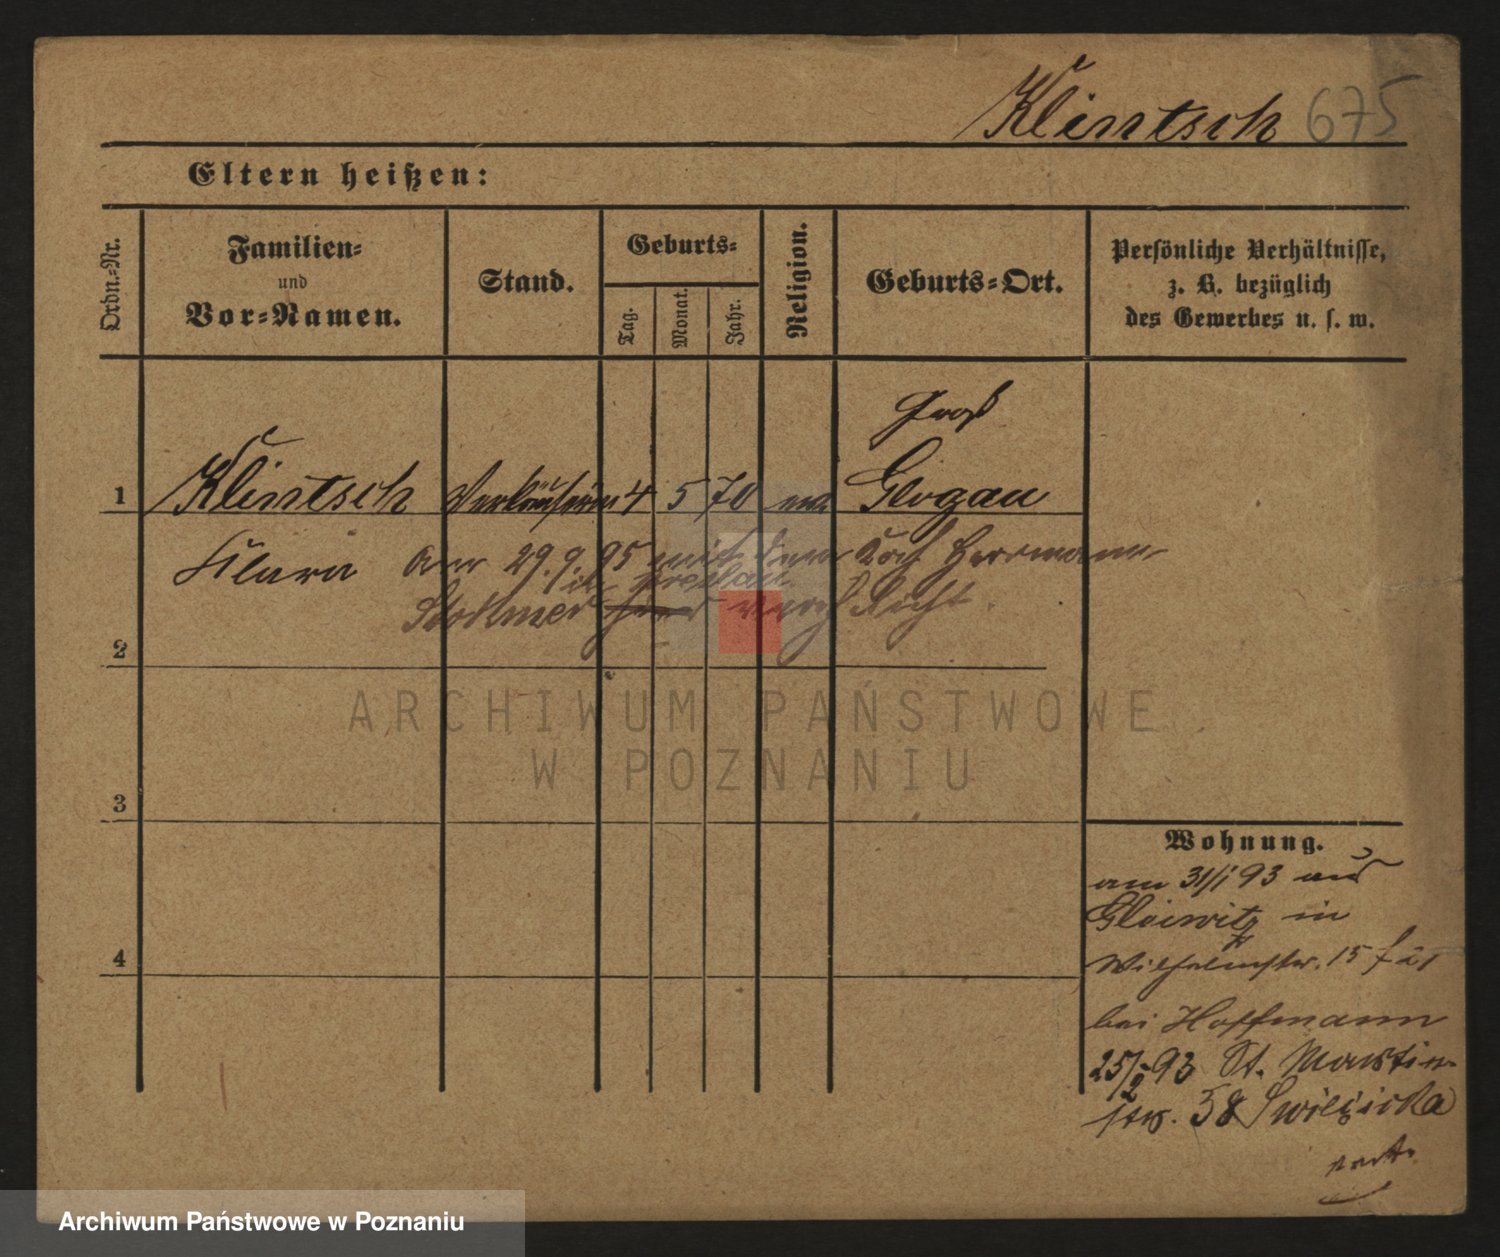 Klintsch 675
Eltern heißen:
Ordn.=Nr.
Familien=
und
Vor=Namen.
Stand.
Geburts=
Tag.
Monat.
Jahr.
Religion.
Geburts=Ort.
Persönliche Verhältnisse,
z. B. bezüglich
des Gewerbes u. s. w.
Groß
1 Klintsch Verkäuferin 4 5 70 Glogau
Klara am 29.9.95 mit dem Koch Herrmann
in Breslau
verehelicht.
2
3
4
ARCHIWUM PAŃSTWOWE
W POZNANIU
Wohnung.
am 31/1 93 aus
Gleiwitz in
Wilhelmstr. 15
bei Hoffmann
25/2 93 St. Martin
str. 58
Archiwum Państwowe w Poznaniu